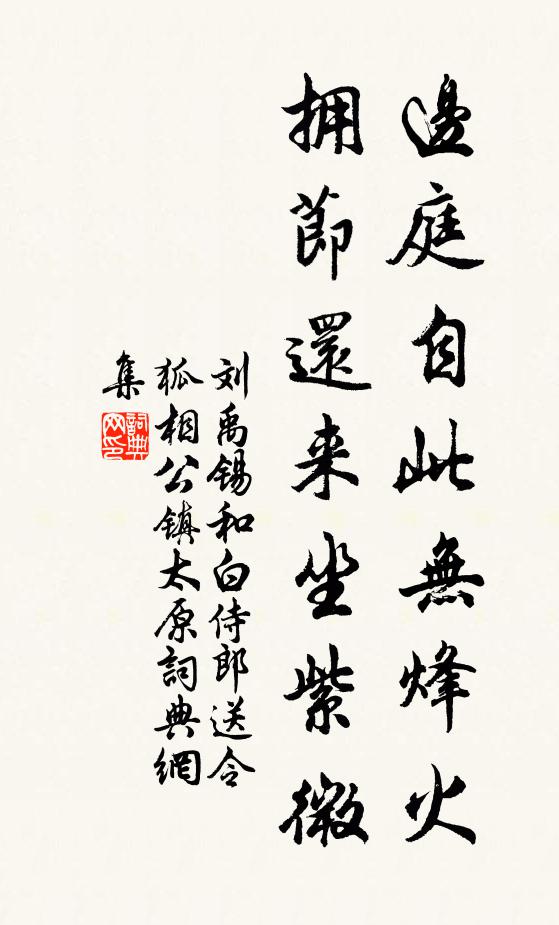 邊庭自此無烽火
擁節還来坐紫微
刘禹锡和白侍郎送令
狐相公鎮太原詞典網
集
詞典
网印